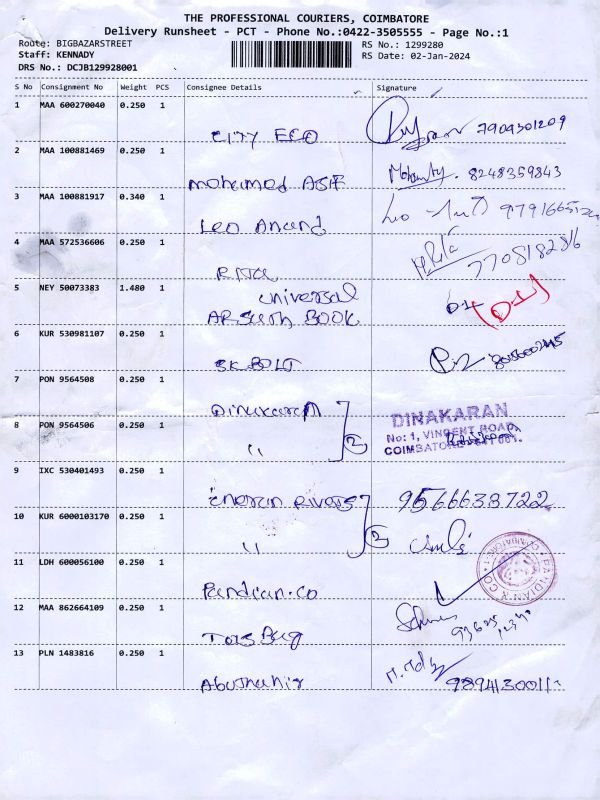 THE PROFESSIONAL COURIERS, COIMBATORE
Delivery Runsheet - PCT - Phone No.:0422-3505555 - Page No.:1
Route: BIGBAZARSTREET
Staff: KENNADY
DRS No.: DCJB129928001
RS No.: 1299280
RS Date: 02-Jan-2024
S No Consignment No Weight PCS Consignee Details Signature
1 MAA 600270040 0.250 1
CITY ECO 7909301209
2 MAA 100881469 0.250 1
mohamed ASIF 8248359843
3 MAA 100881917 0.340 1
Leo Anand
4 MAA 572536606 0.250 1
7708182816
5 NEY 50073383 1.480 1
universal
BOOK
6 KUR 530981107 0.250 1
SK BOLT
7 PON 9564508 0.250 1
Dinakaran
8 PON 9564506 0.250 1
" 2
DINAKARAN
No: 1, VINCENT ROAD,
COIMBATORE - 641 001.
9 IXC 530401493 0.250 1
Rivers 9566633722
10 KUR 6000103170 0.250 1
" 2
11 LDH 600056100 0.250 1
Pandian.co
PANDIAN & CO
COIMBATORE-1
12 MAA 862664109 0.250 1
13 PLN 1483816 0.250 1
Abuthahir